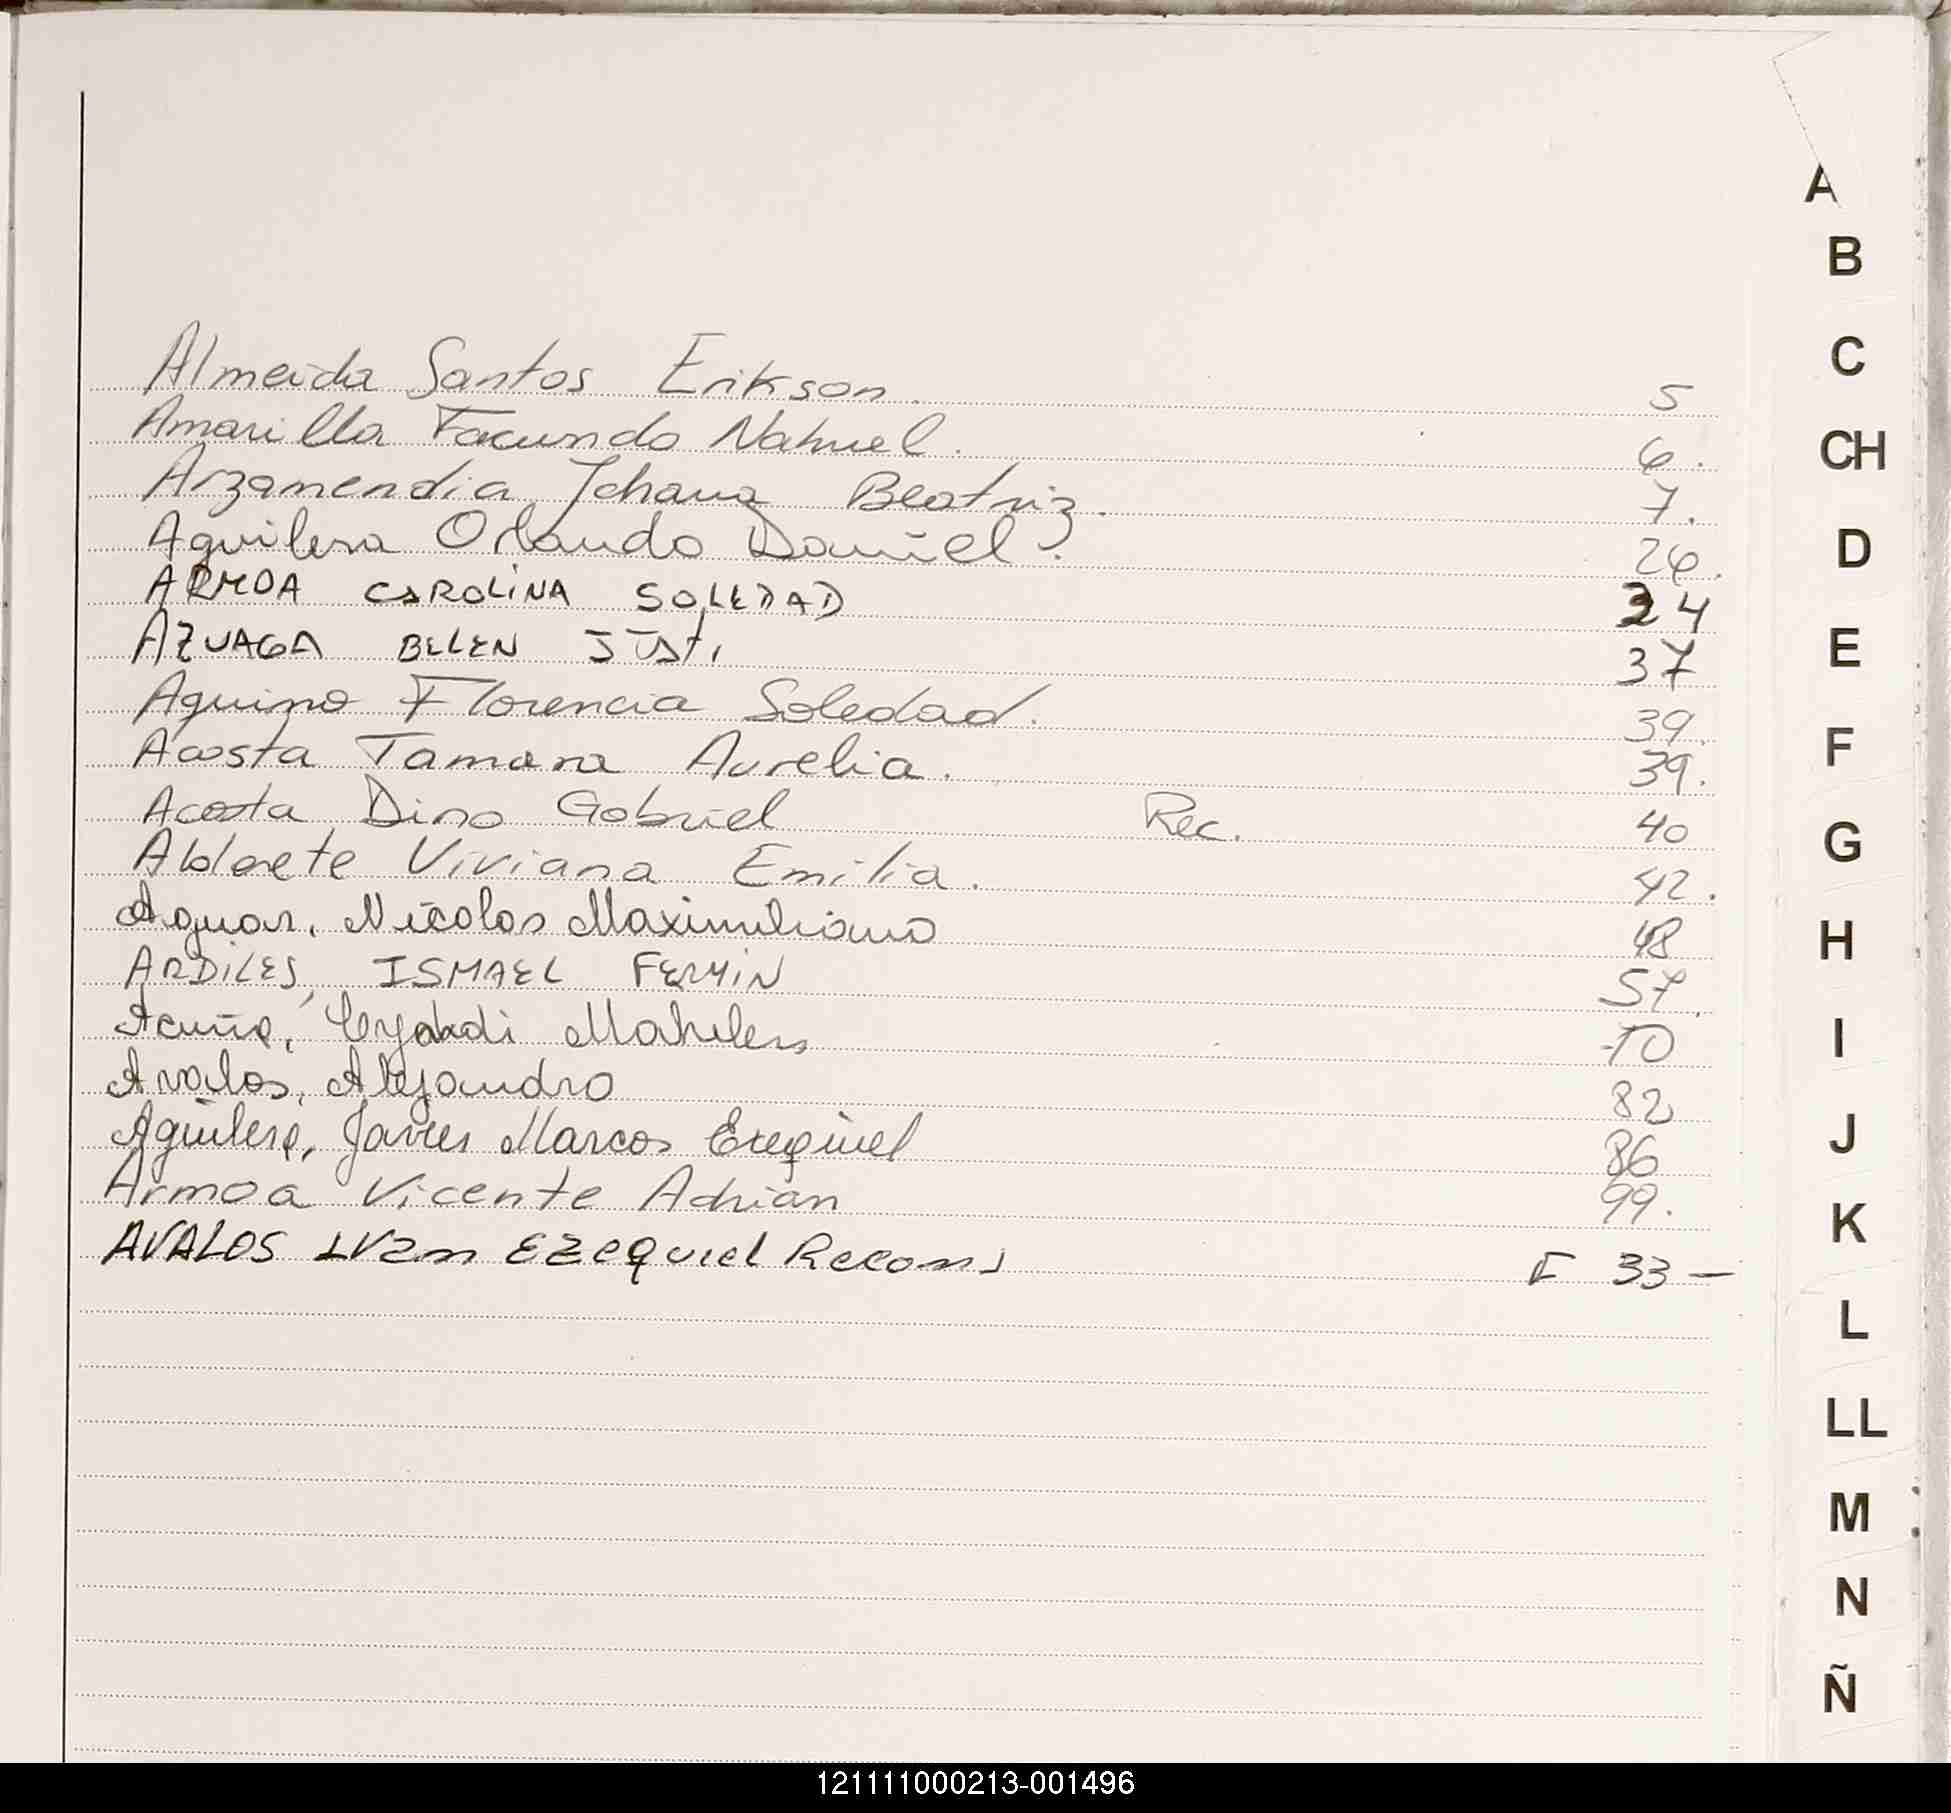 Almeida Santos Erikson. 5
Amarilla Facundo Nahuel. 6.
Arzamendia Johana Beatriz. 7.
Aguilera Orlando Daniel. 26.
ARMOA CAROLINA SOLEDAD 34
AZUAGA BELEN JUSTI 37
Aquino Florencia Soledad. 39.
Acosta Tamara Aurelia. 39.
Acosta Dino Gabriel Rec. 40
Alderete Viviana Emilia. 42.
Aguar, Nicolas Maximiliano 48
ARDILES, ISMAEL FERMIN 57
Acuña,
Avalos, Alejandro 82
Aguilera, Javier Marcos Ezequiel 86
Armoa Vicente Adrian 99.
AVALOS IVan EZEQUIEL Recons F 33 -
A
B
C
CH
D
E
F
G
H
I
J
K
L
LL
M
N
Ñ
121111000213-001496